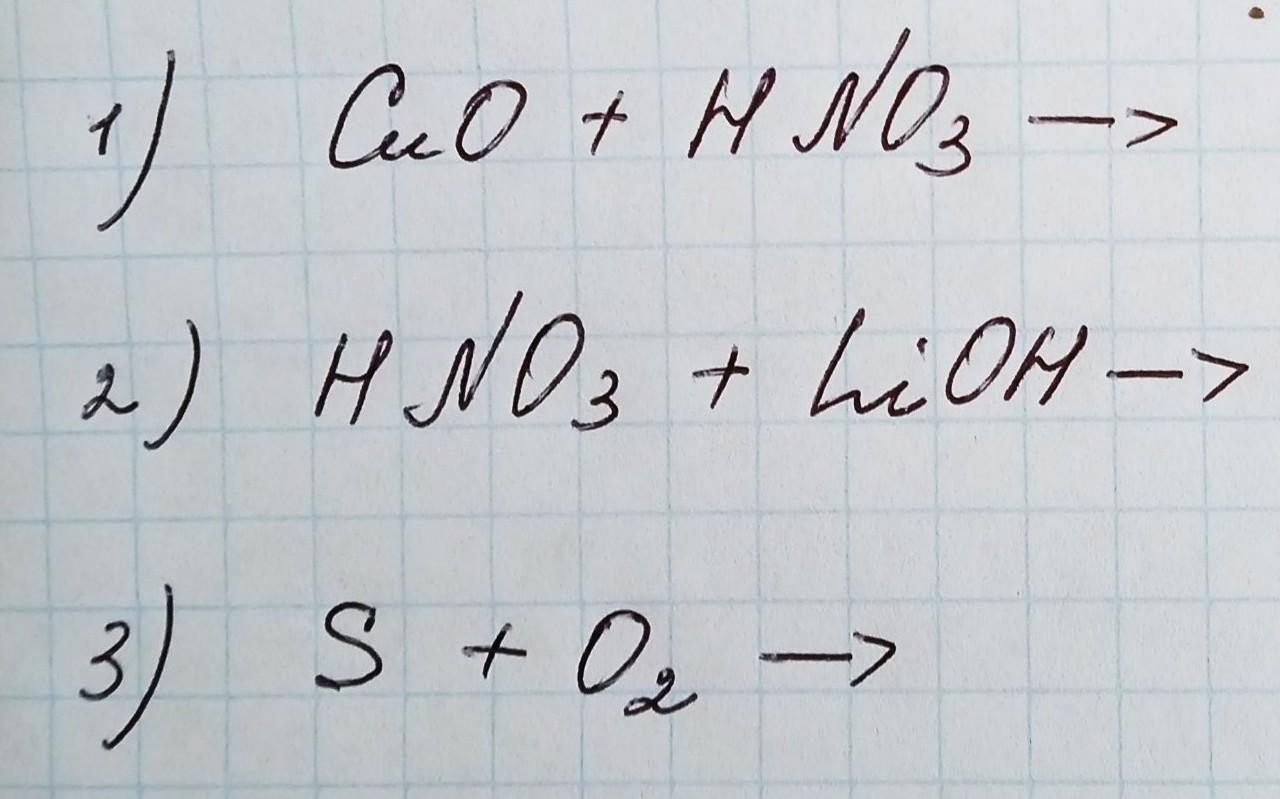 1) CuO + HNO₃ →
2) HNO₃ + LiOH →
3) S + O₂ →